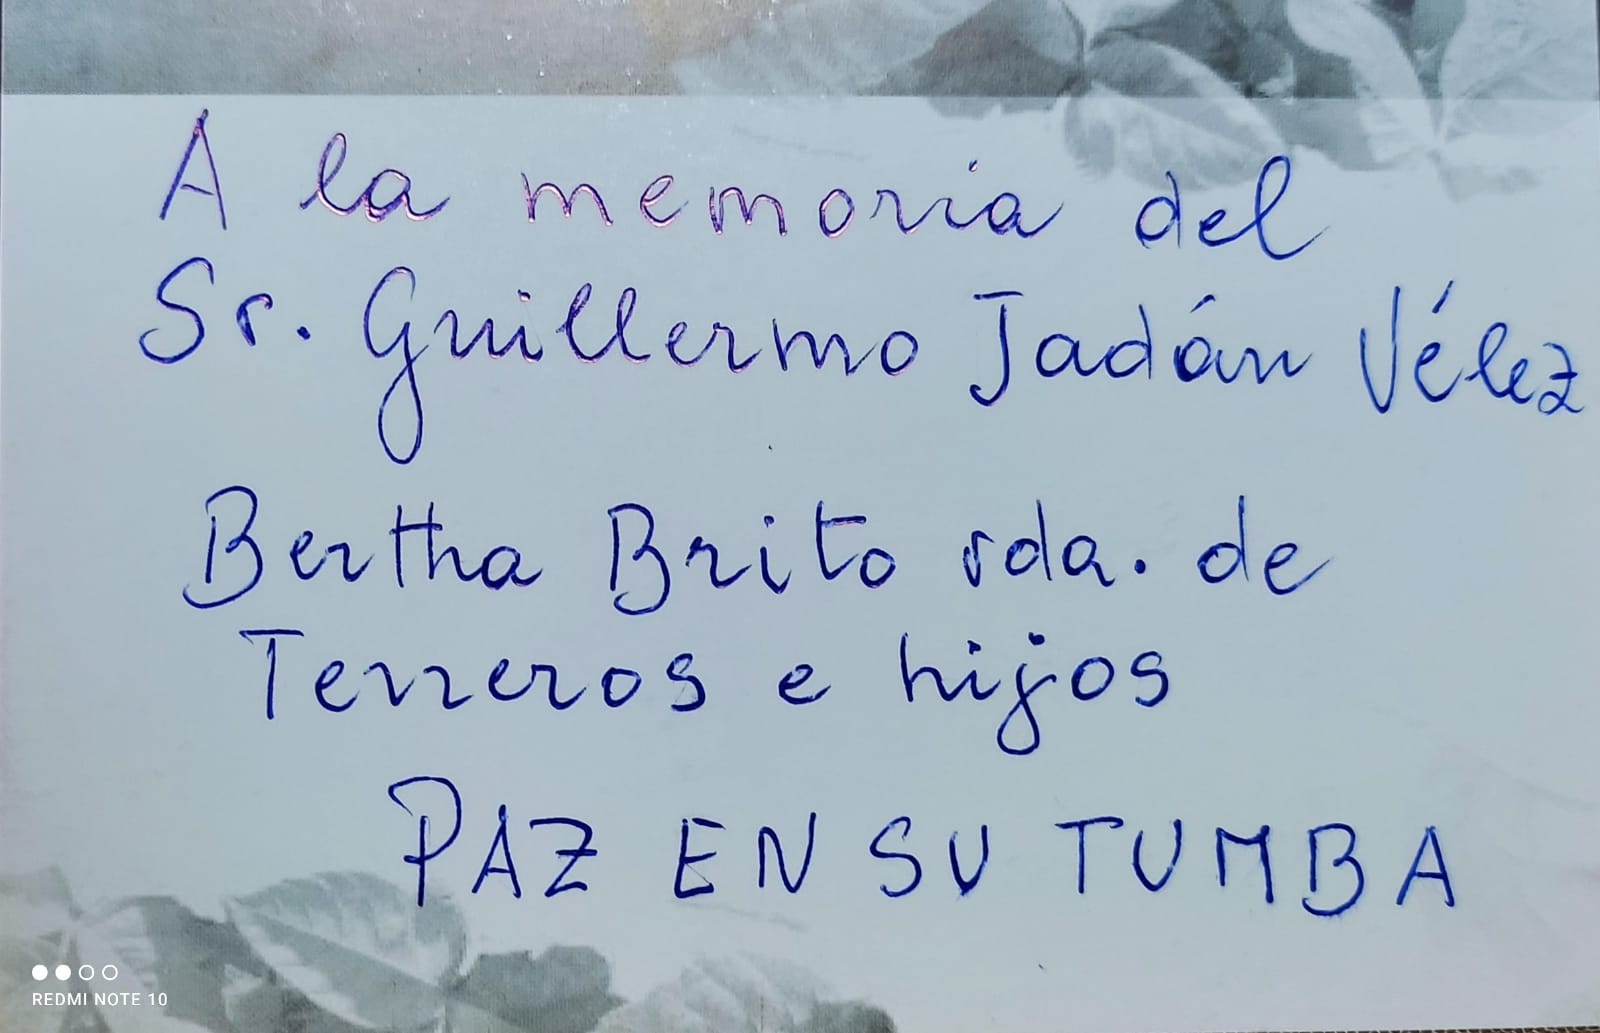 A la memoria del
Sr. Guillermo Jadán Vélez
Bertha Brito vda. de
Terreros e hijos
PAZ EN SU TUMBA
REDMI NOTE 10